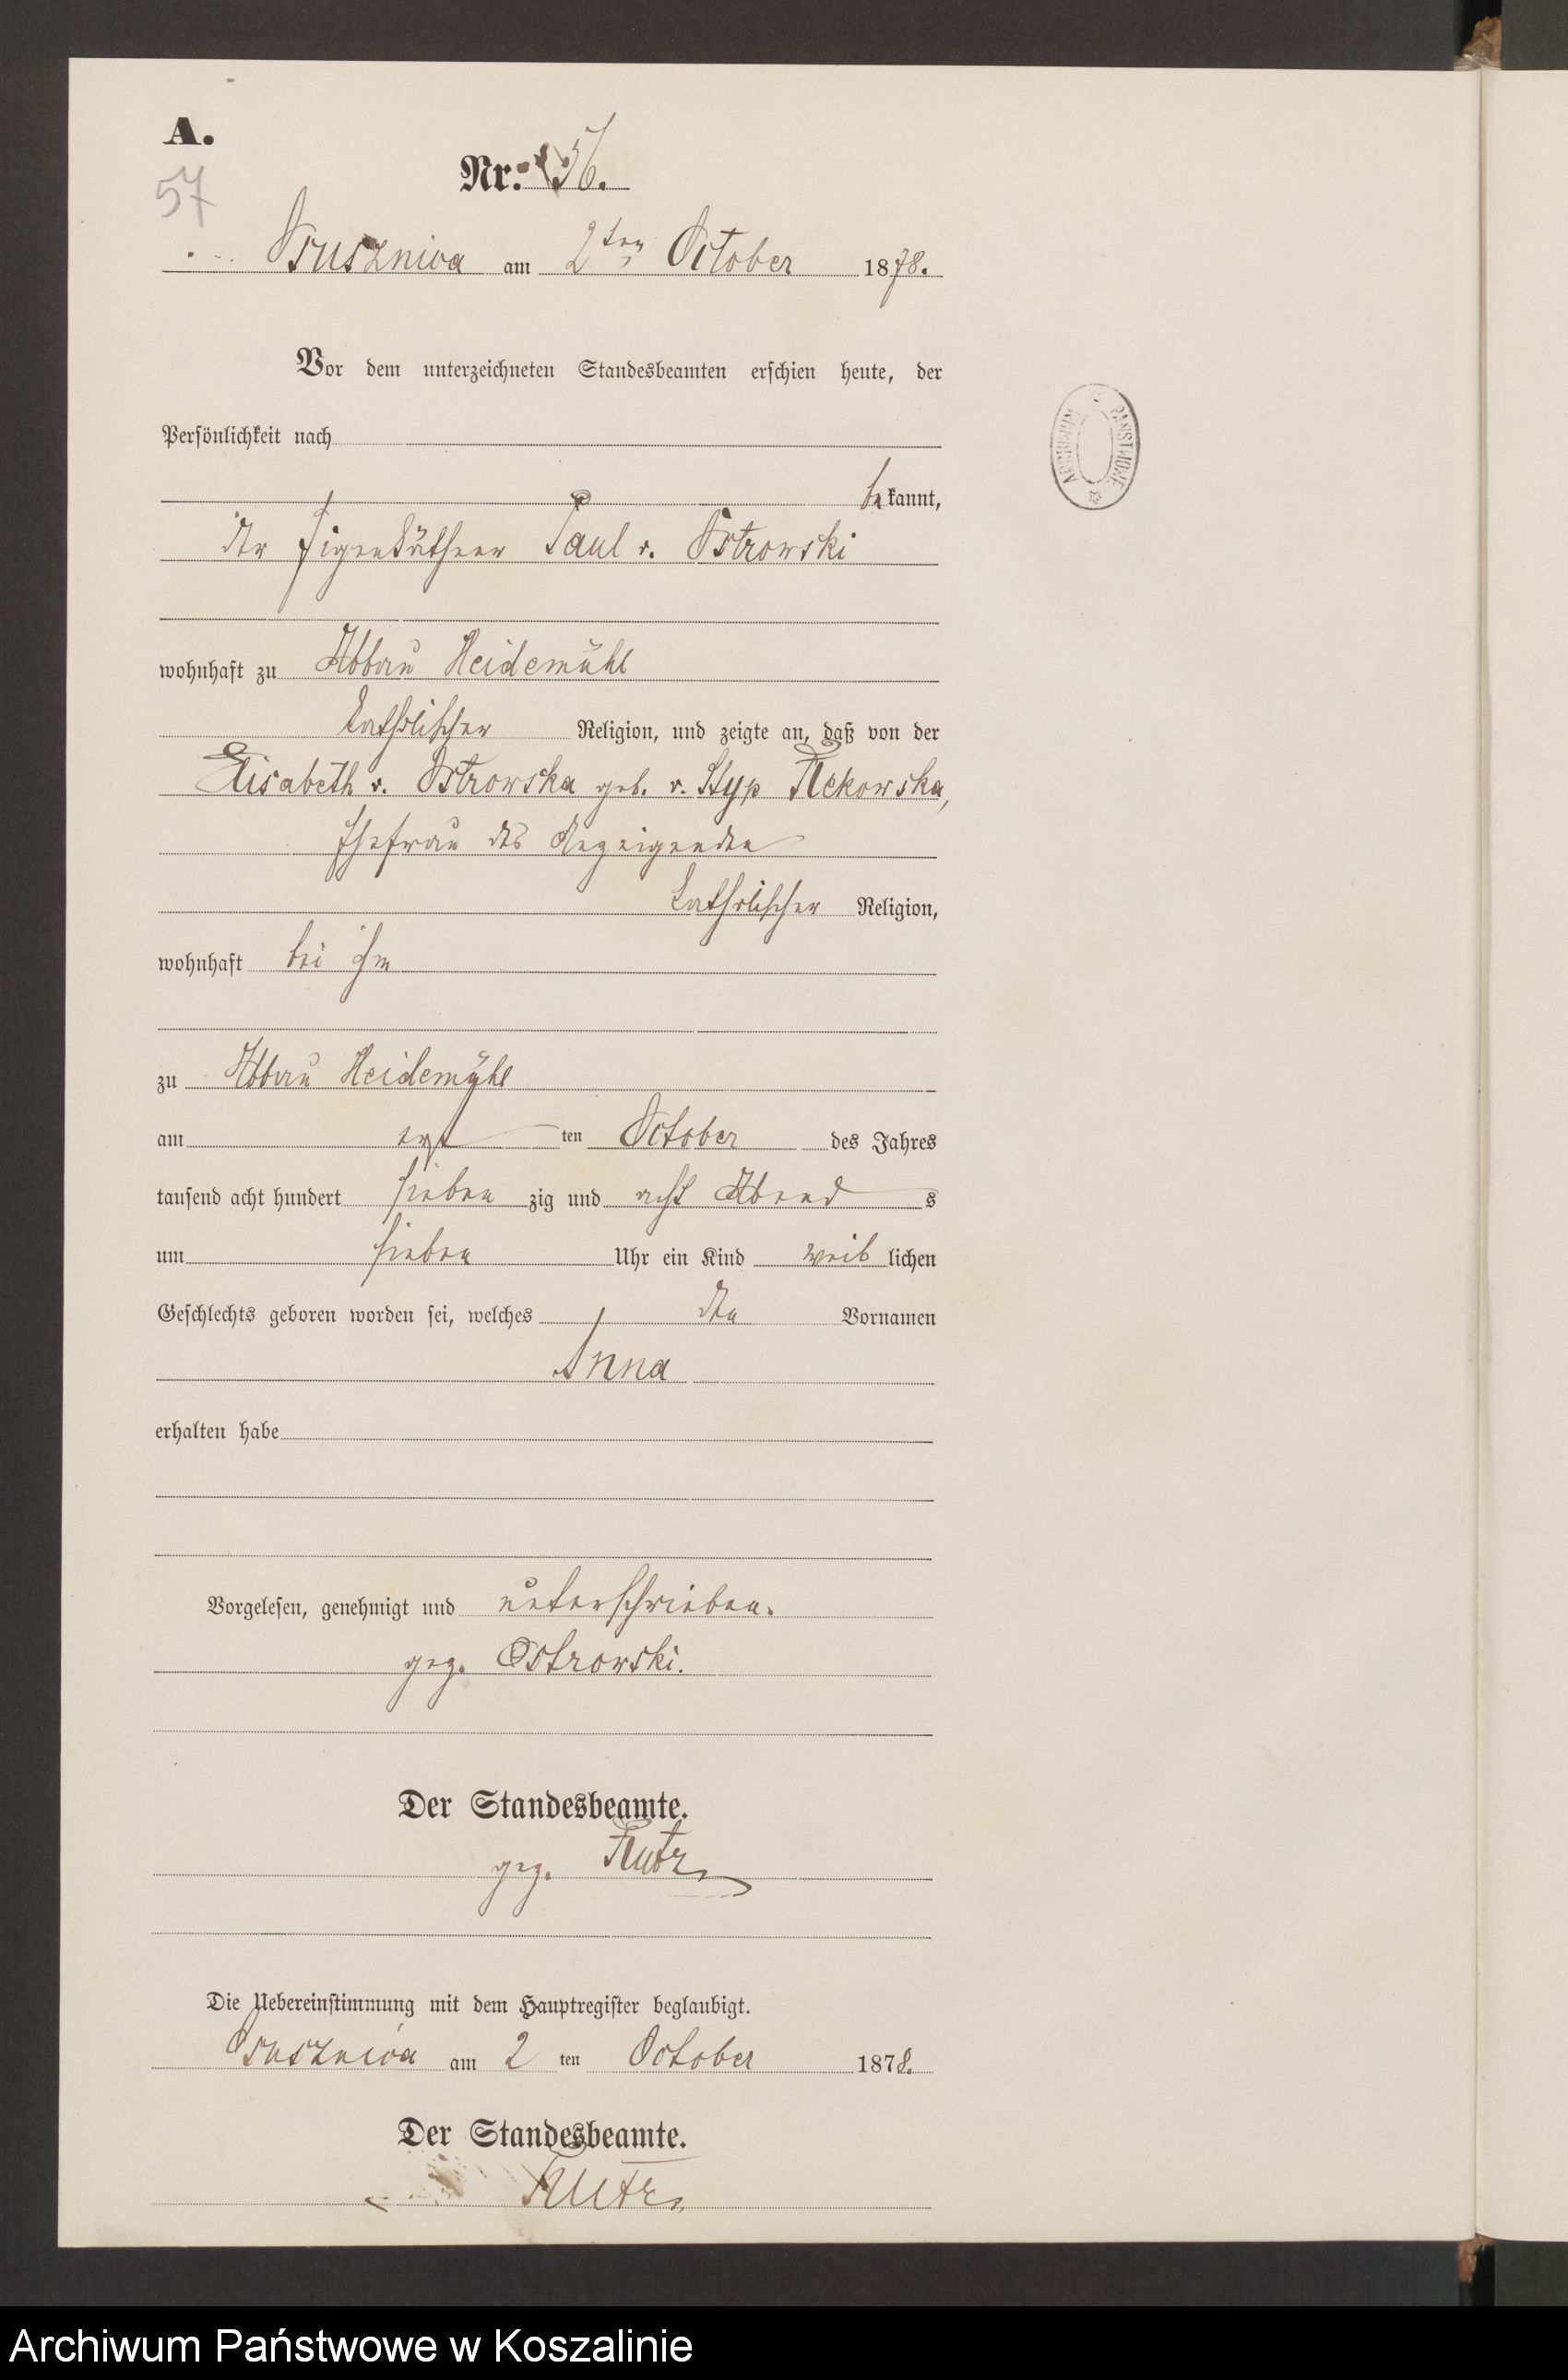 A.
57
Nr. 56.
Osusznica am 2ten October 1878.
Vor dem unterzeichneten Standesbeamten erschien heute, der
Persönlichkeit nach
bekannt,
der Eigenkäthner Paul v. Ostrowski
wohnhaft zu Abbau Heidemühl
katholischer Religion, und zeigte an, daß von der
Elisabeth v. Ostrowska geb. v. Styp Rekowska,
Ehefrau des Anzeigenden
katholischer Religion,
wohnhaft bei ihm
zu Abbau Heidemühl
am ersten October des Jahres
tausend acht hundert siebenzig und acht Abends
um sieben Uhr ein Kind weiblichen
Geschlechts geboren worden sei, welches den Vornamen
Anna
erhalten habe
Vorgelesen, genehmigt und unterschrieben.
gez. Ostrowski.
Der Standesbeamte.
gez. Kutz
Die Uebereinstimmung mit dem Hauptregister beglaubigt.
Osusznica am 2 ten October 1878.
Der Standesbeamte.
Kutz
ARCHIWUM PAŃSTWOWE
Archiwum Państwowe w Koszalinie